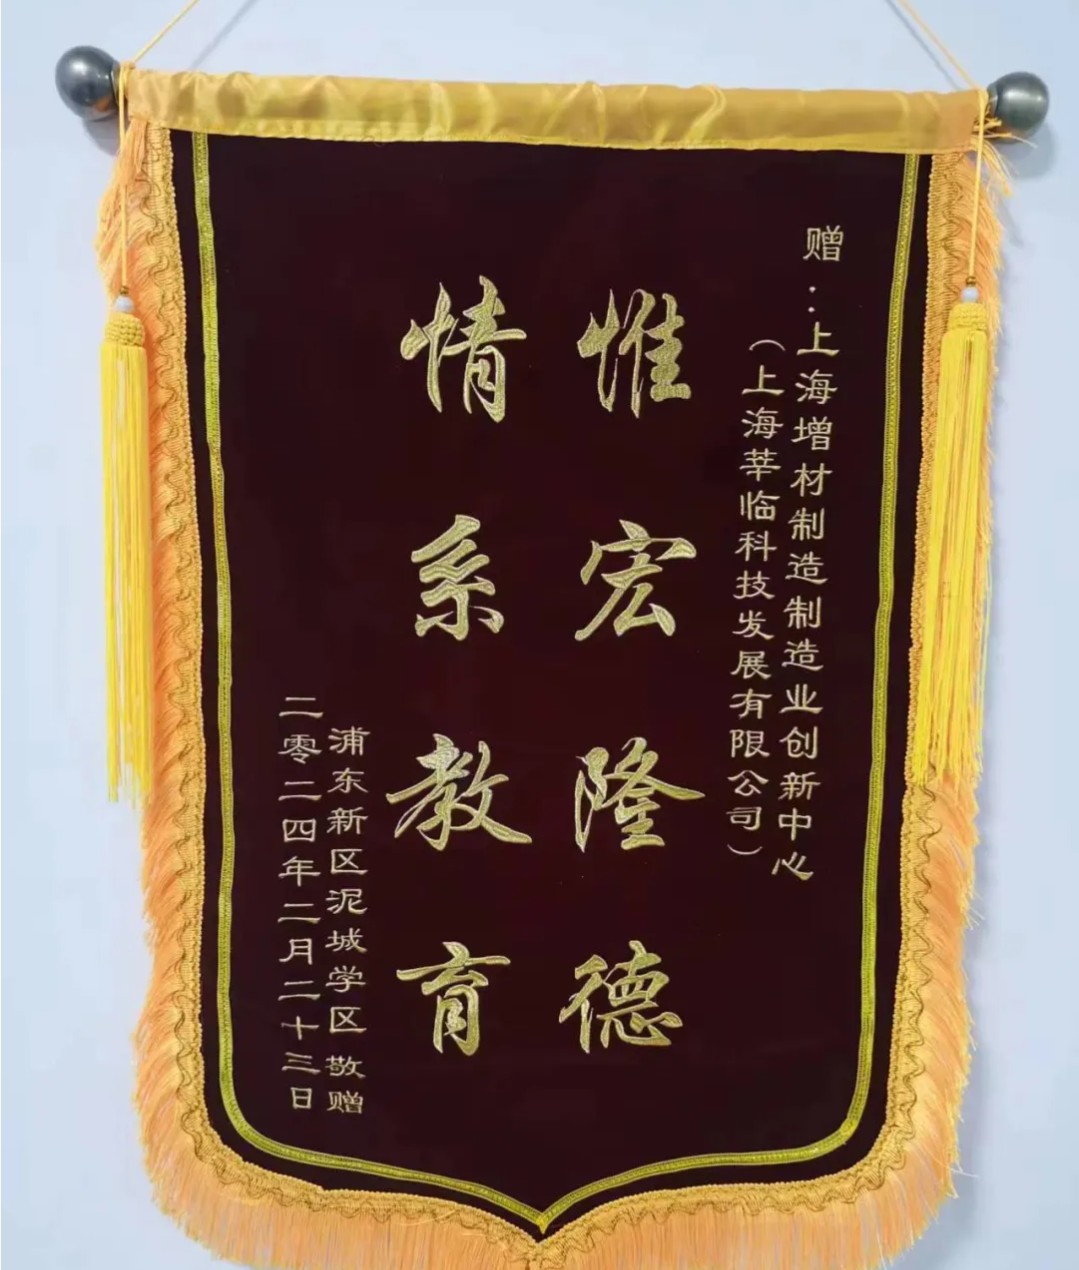 赠：上海增材制造制造业创新中心
（上海莘临科技发展有限公司）
惟宏隆德
情系教育
浦东新区泥城学区 敬赠
二零二四年二月二十三日